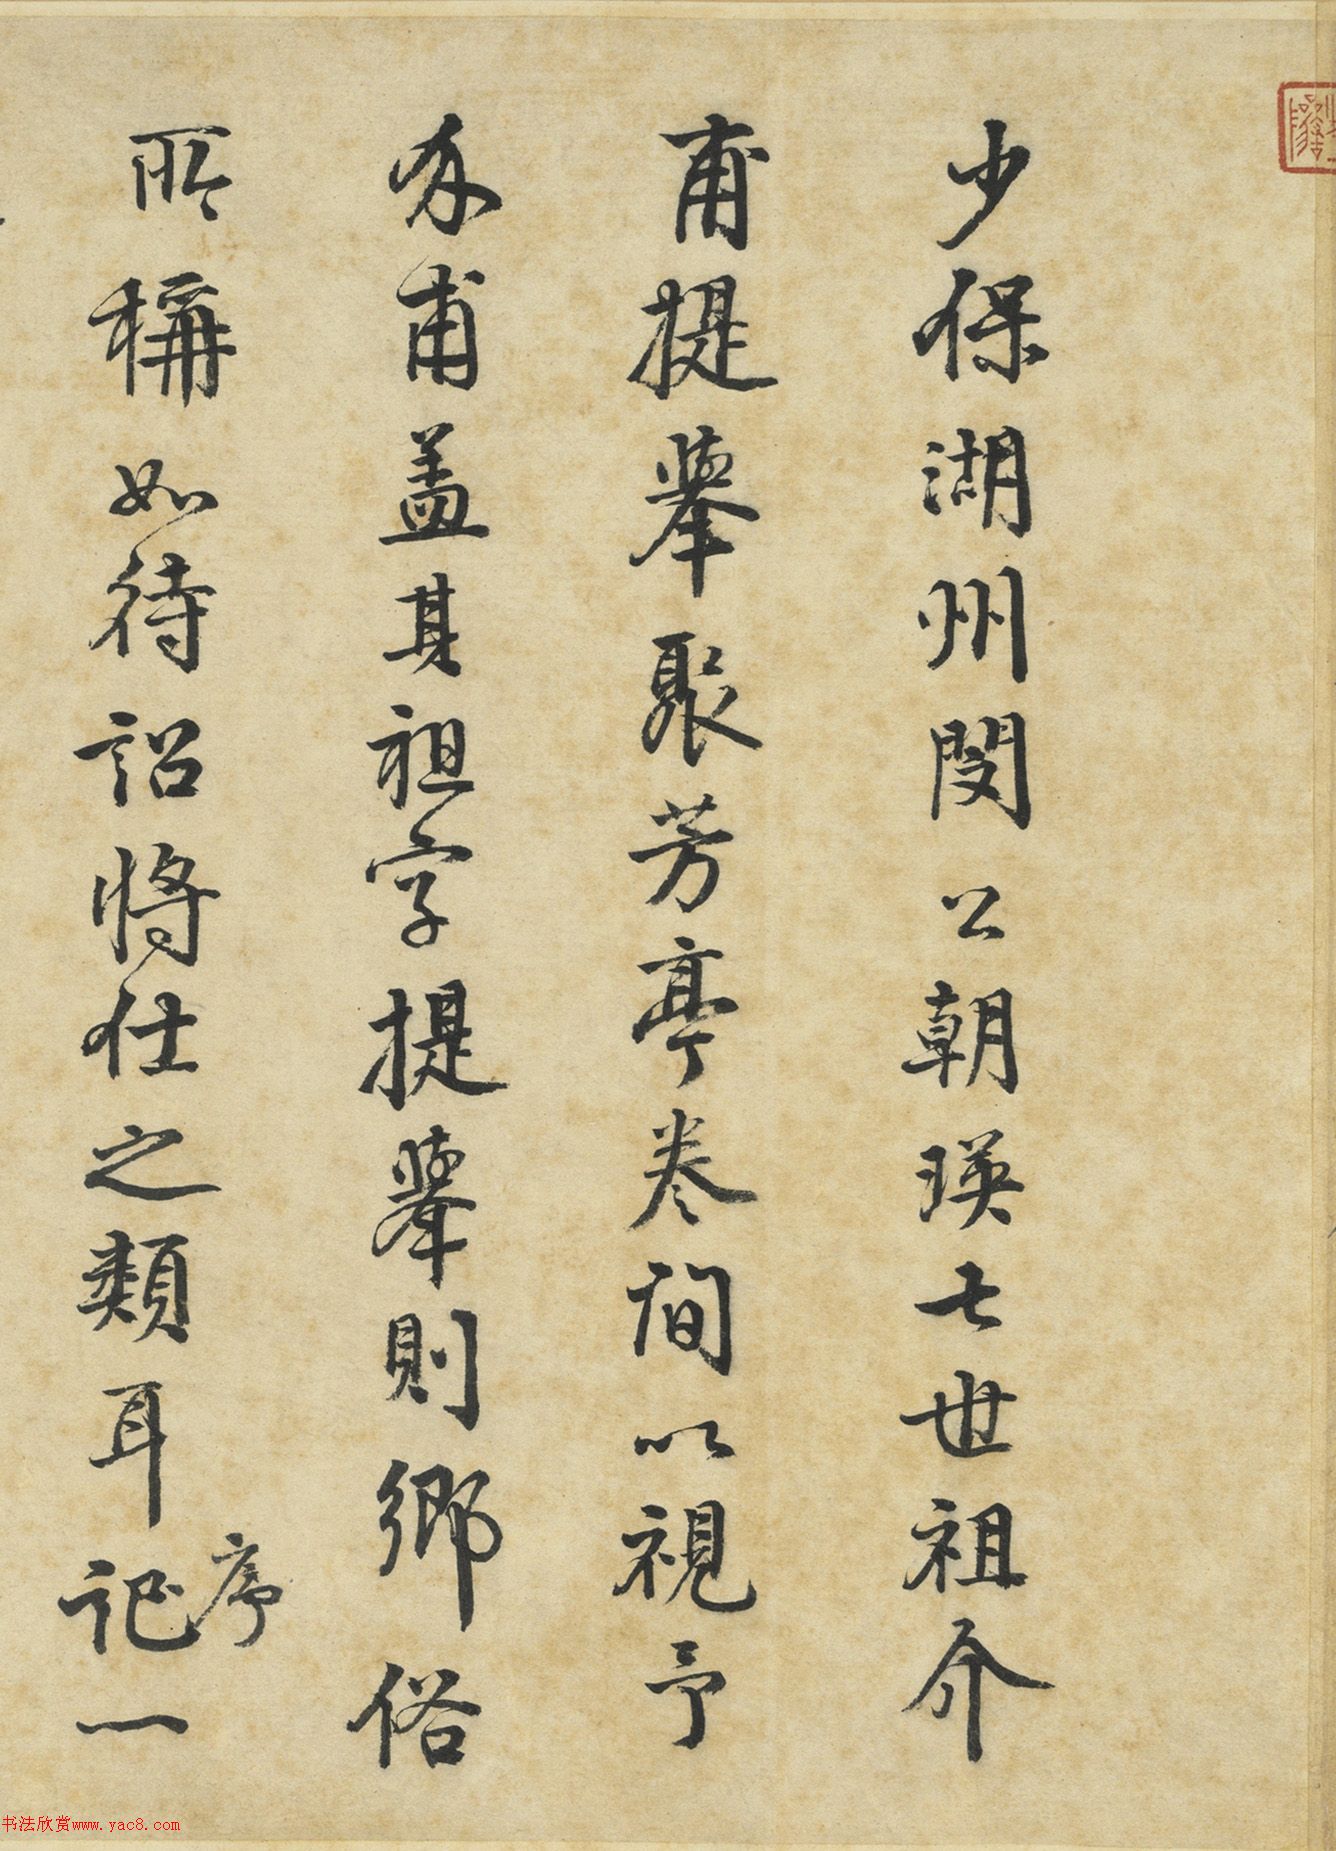 少保湖州閔公朝瑛七世祖介
甫提舉聚芳亭卷間以視予
介甫盖其祖字提舉則鄉俗
所稱如待詔將仕之類耳序記一
书法欣赏www.yac8.com